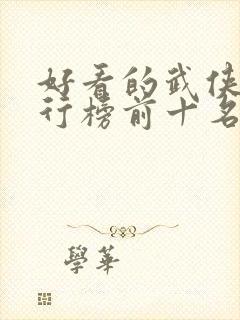 好看的武侠
行榜前十名
學華